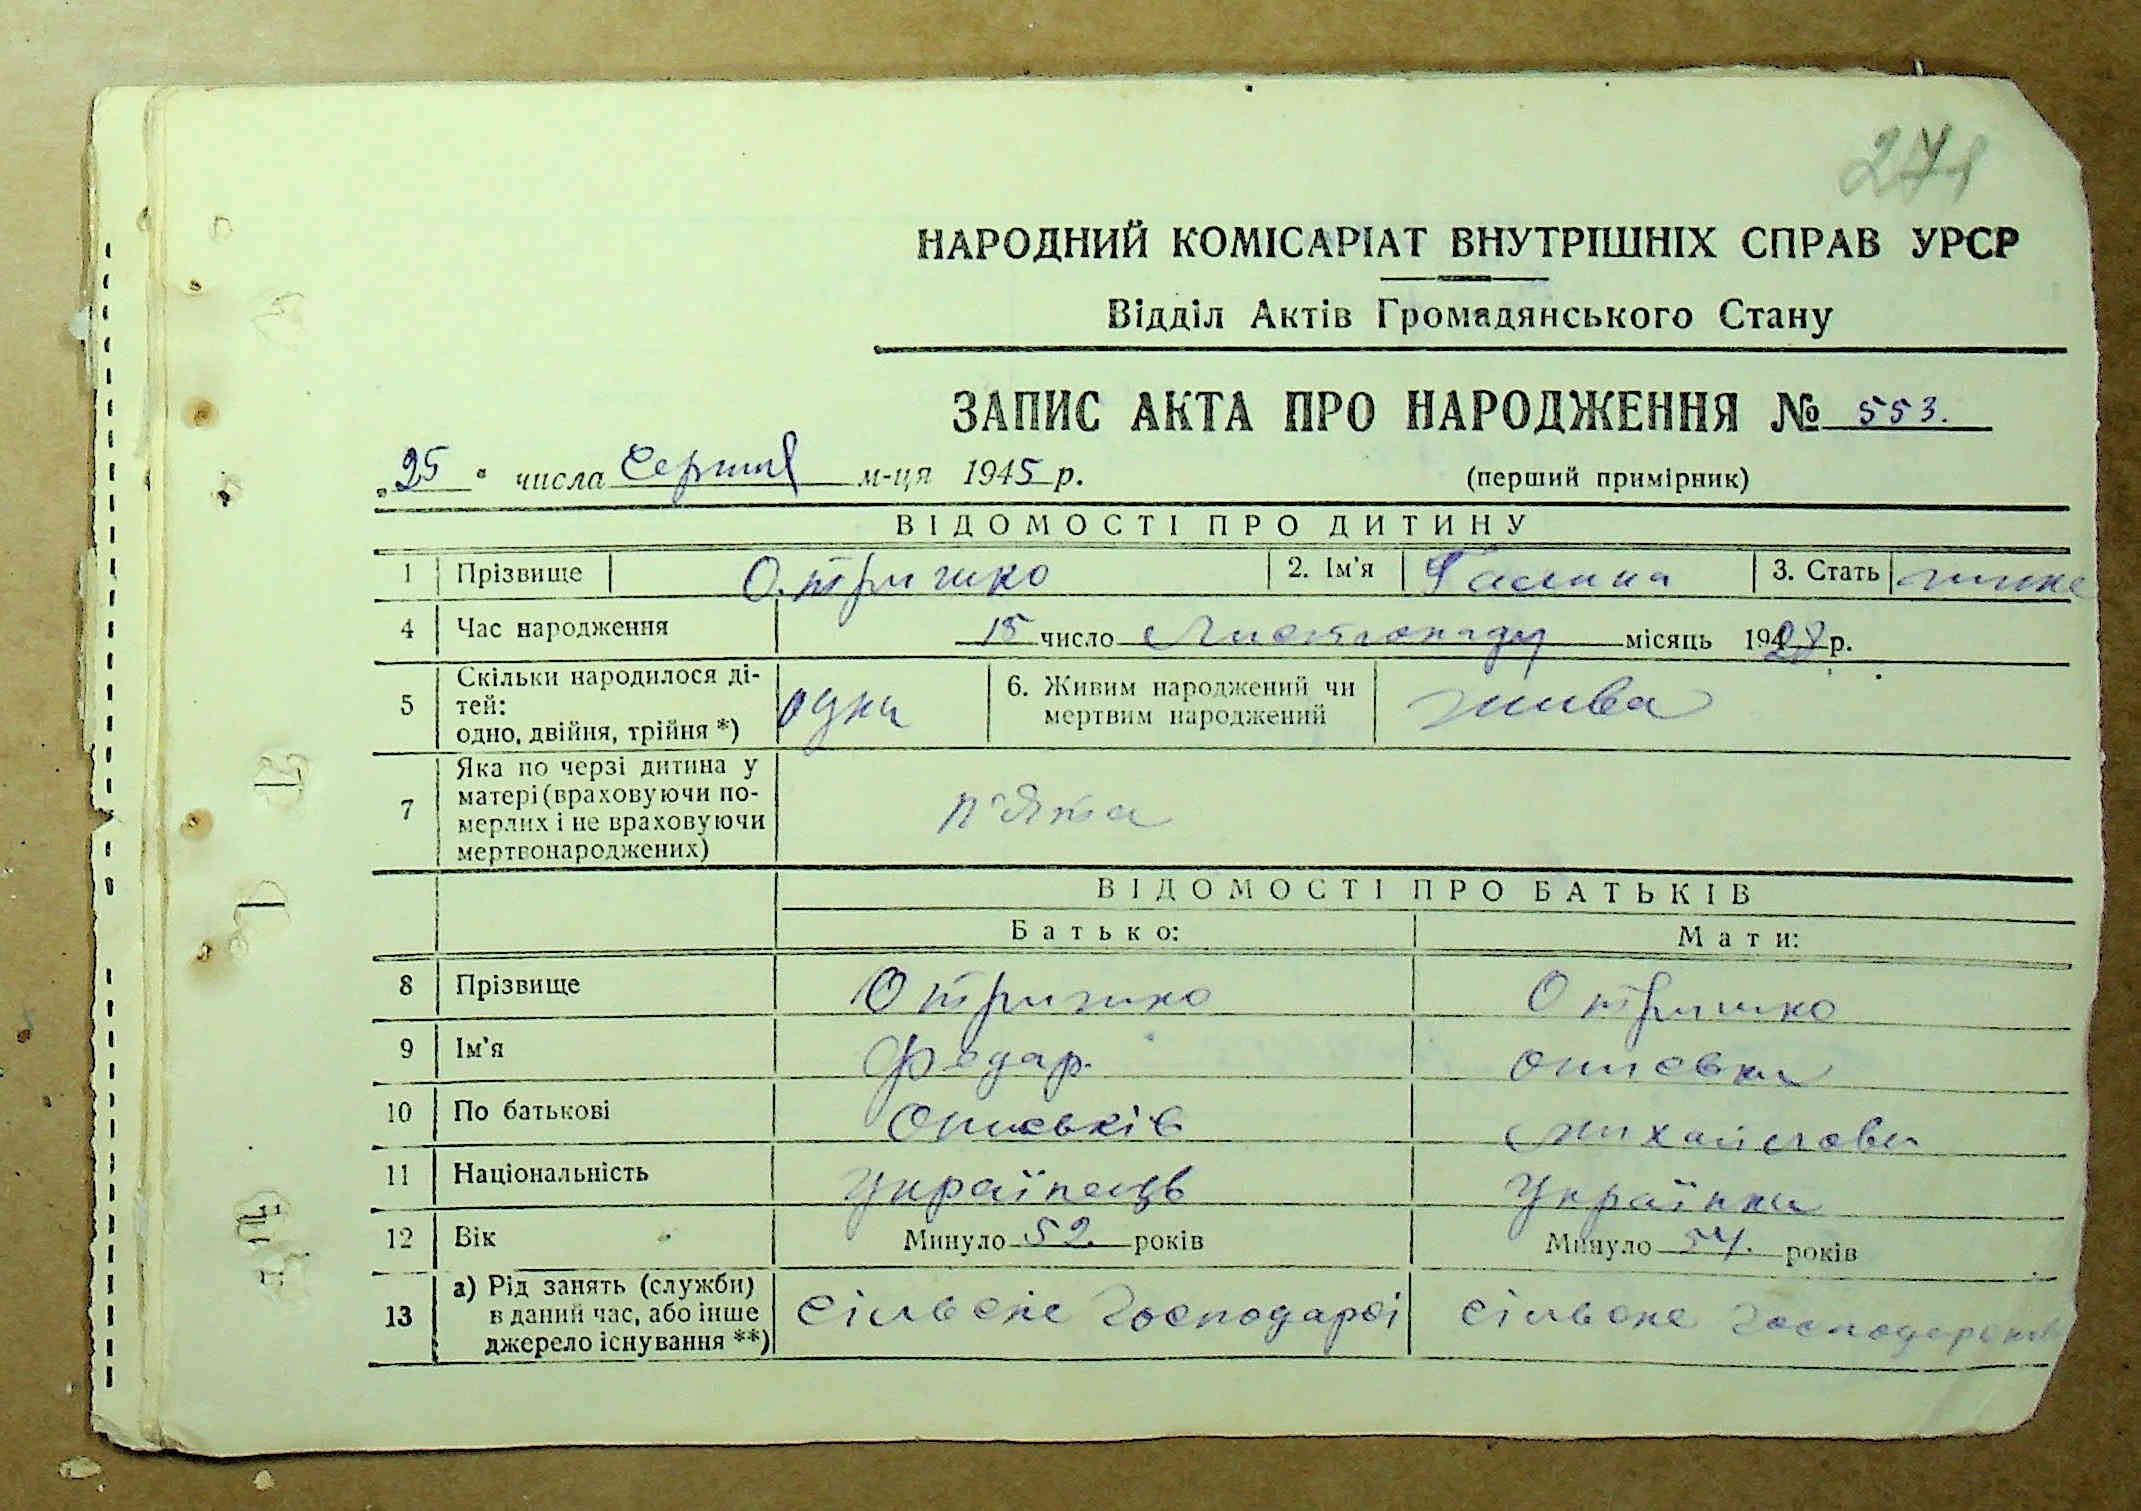 271
НАРОДНИЙ КОМІСАРІАТ ВНУТРІШНІХ СПРАВ УРСР
Відділ Актів Громадянського Стану
ЗАПИС АКТА ПРО НАРОДЖЕННЯ № 553.
„25" числа Серпня м-ця 1945 р. (перший примірник)
ВІДОМОСТІ ПРО ДИТИНУ
1 Прізвище Отришко 2. Ім'я Галина 3. Стать жіноч
4 Час народження 15 число Листопаду місяць 1928 р.
5 Скільки народилося ді-
тей:
одно, двійня, трійня *) одна 6. Живим народжений чи
мертвим народжений жива
7 Яка по черзі дитина у
матері (враховуючи по-
мерлих і не враховуючи
мертвонароджених) п'ята
ВІДОМОСТІ ПРО БАТЬКІВ
Батько: Мати:
8 Прізвище Отришко Отришко
9 Ім'я Федар
10 По батькові
11 Національність Українець Українка
12 Вік Минуло 52. років Минуло 54. років
13 а) Рід занять (служби)
в даний час, або інше
джерело існування **) Сільске Господарсі сільске